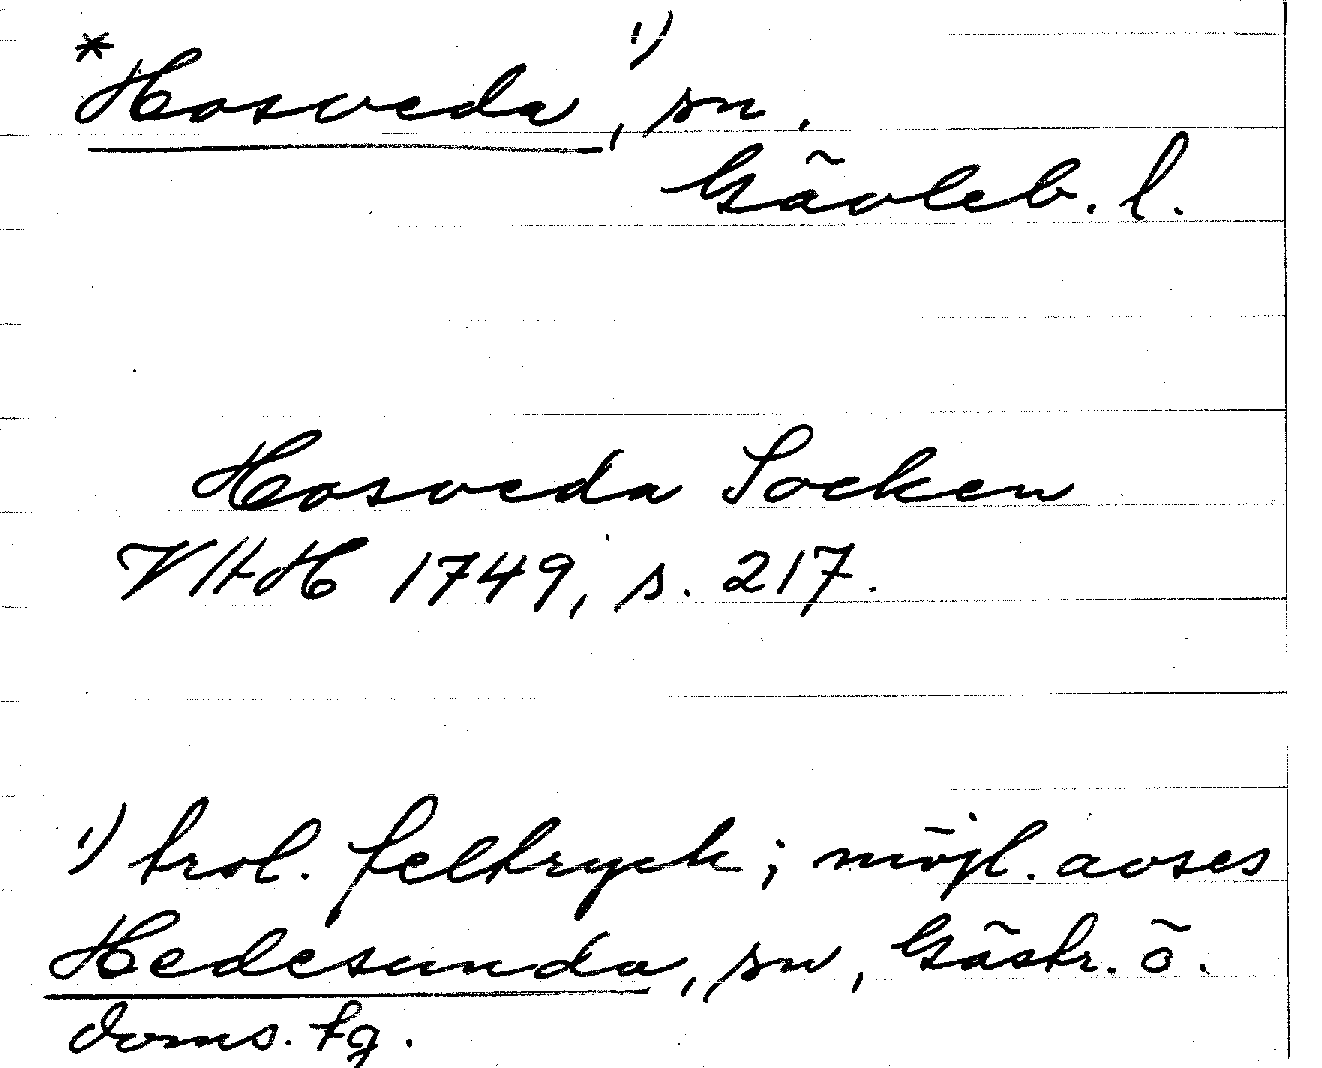 *Hosveda¹⁾, sn.
Gävleb. l.
Hosveda Socken
VHAH 1749, s. 217.
¹⁾ trol. feltryck; möjl. avses
Hedesunda, sn, Gästr. ö.
doms. tg.